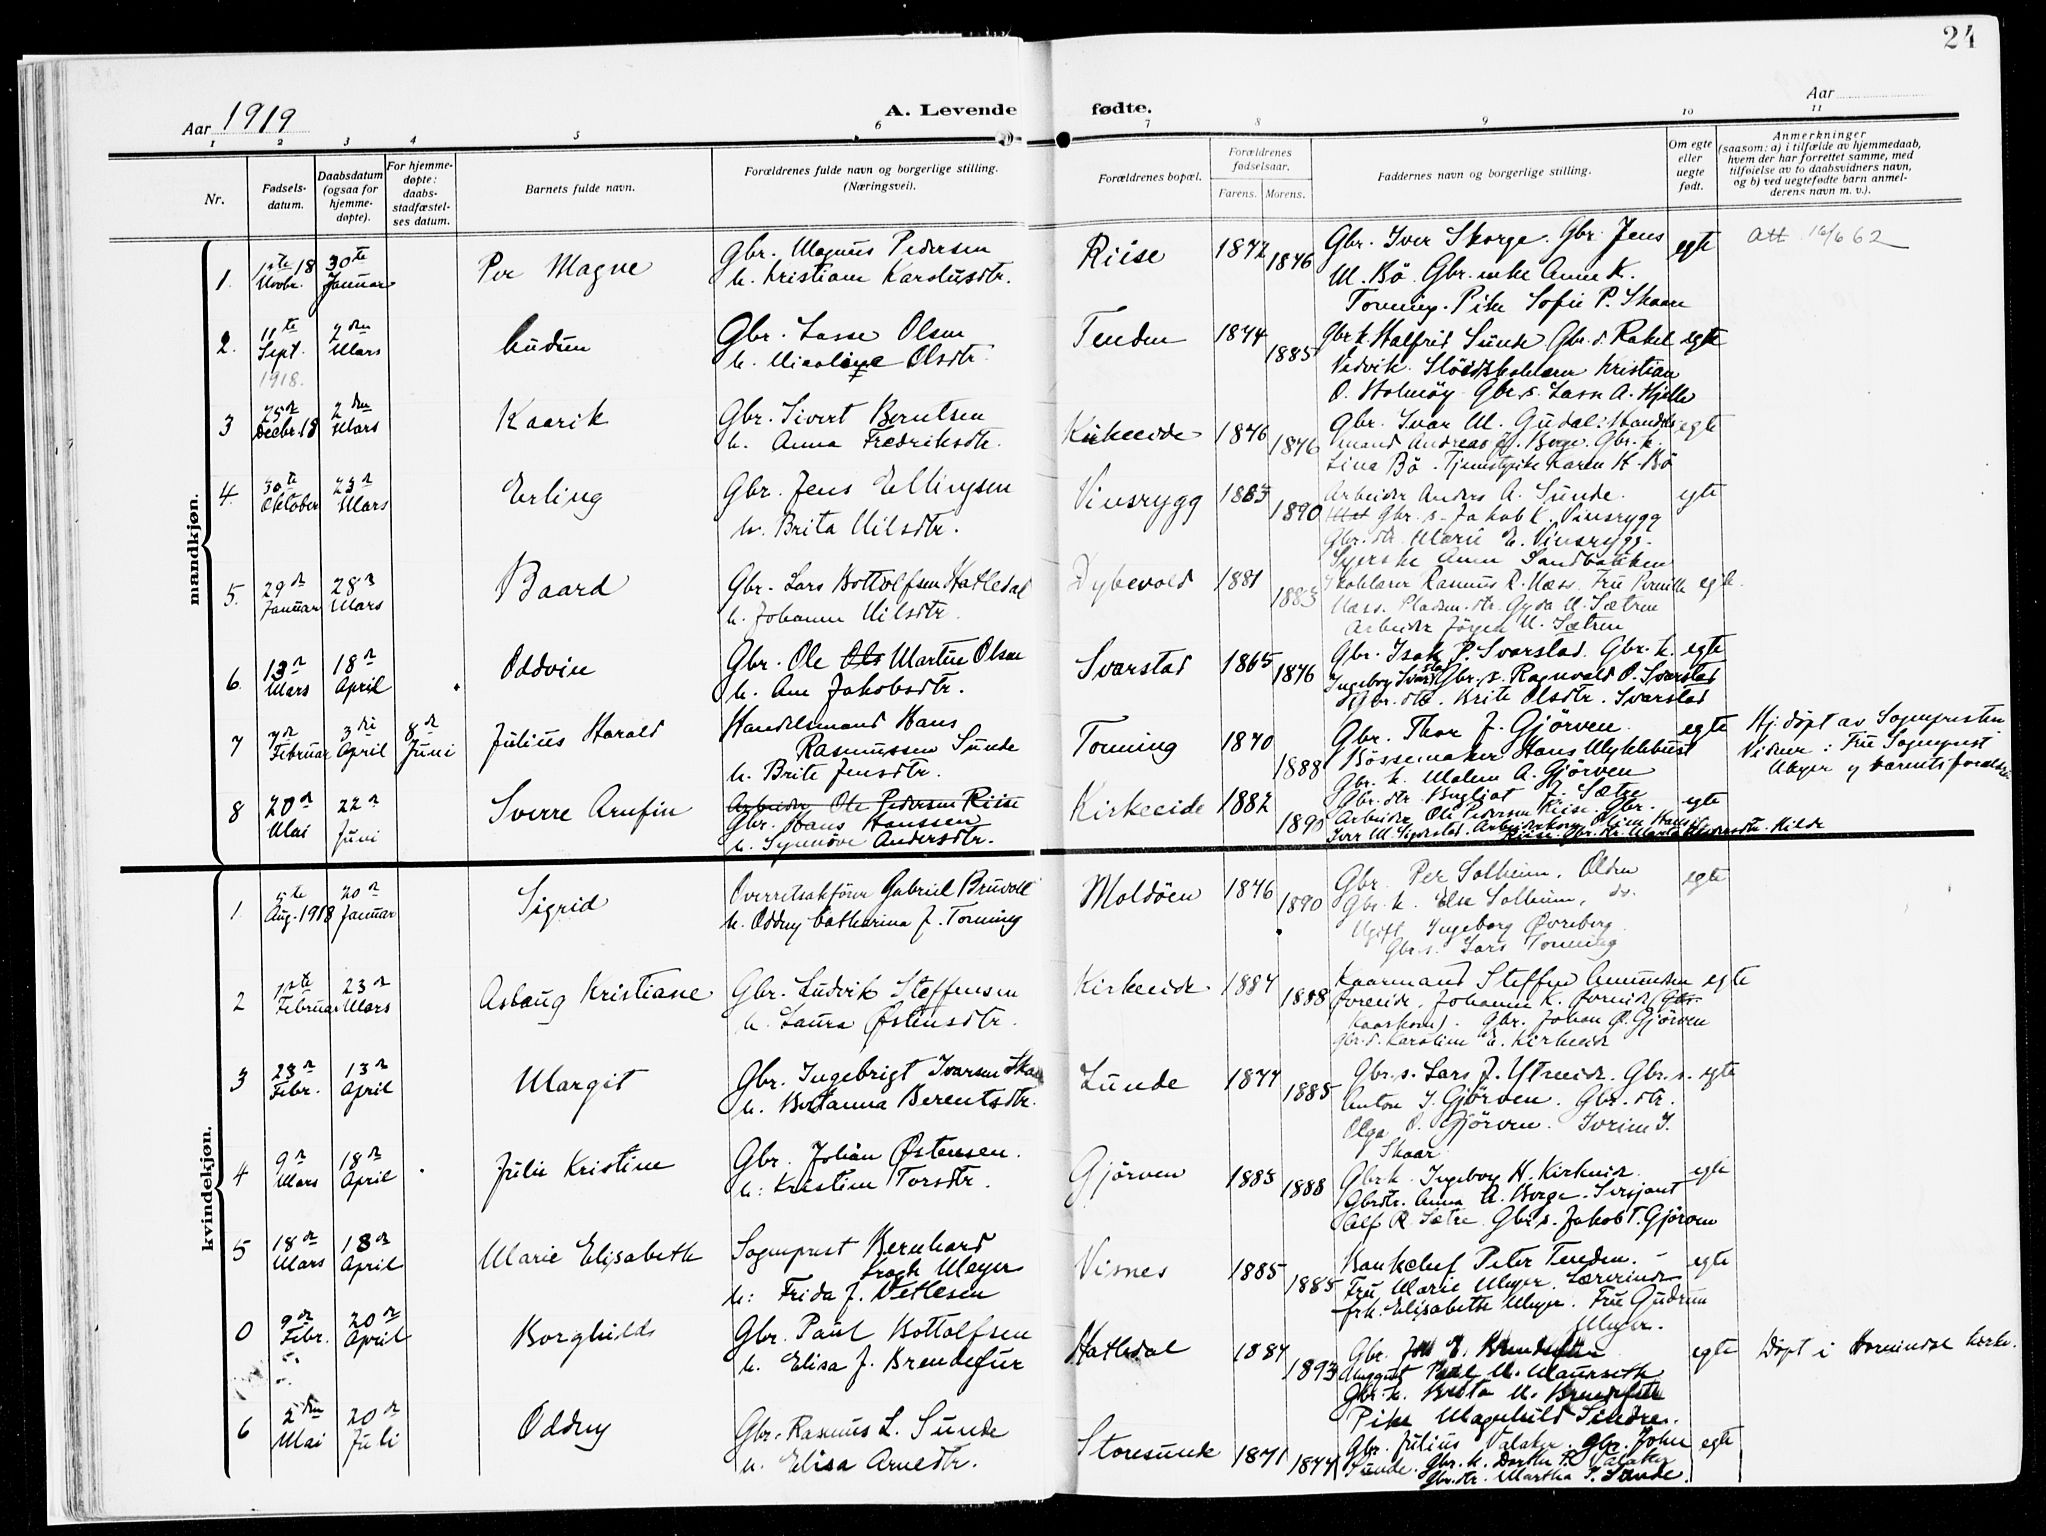 24
Aar 1919
A. Levende fødte.
Aar
1 2 3 4 5 6 7 8 9 10 11
Nr.
Fødsels-
datum.
Daabsdatum
(ogsaa for
hjemme-
døpte).
For hjemme-
døpte:
daabs-
stadfæstel-
ses datum.
Barnets fulde navn.
Forældrenes fulde navn og borgerlige stilling.
(Næringsvei).
Forældrenes bopæl.
Forældrenes
fødselsaar.
Farens. Morens.
Faddernes navn og borgerlige stilling.
Om egte
eller
uegte
født.
Anmerkninger
(saasom: a) i tilfælde av hjemmedaab,
hvem der har forrettet samme, med
tilføielse av to daabsvidners navn,
og b) ved uegtefødte barn anmel-
derens navn m. v.).
mandkjøn.
1. 11te 18 Novbr. 30te Januar Per Magne
Gbr. Magnus Pedersen
h. Kristiane Karolusdtr.
Riise 1872 1876
Gbr. Iver Skorge. Gbr. Jens
M. Bö Gbr. enke Anne K.
Tonning. Pike Sofie P. Skaare
egte Att 16/6 62
2. 11te Sept. 1918. 2den Mars Audun
Gbr. Lasse Olsen
h. Nicoline Olsdtr.
Tenden 1874 1885
Gbr. k. Halfrid Sunde Gbr. d. Rakel
Vedvik. Slöidskolelærer Kristian
O. Holmöy Gbr. s. Lasse A. Hjelle
egte
3 25de Decbr. 18 2den Mars Kaarik
Gbr. Sivert Berntsen
h. Anna Fredriksdtr.
Kirkeeide 1876 1876
Gbr. Ivar M. Gudal: Handels
mand Andreas J. Berge. Gbr. k.
Lina Bö. Tjenestepike Karen K. Bö
egte
4. 30te Oktober 23de Mars Erling
Gbr. Jens Ellingsen
h. Brita Nilsdtr.
Vinsrygg 1883 1890
Arbeider Anders A. Sunde.
Gbr. s. Jakob K. Vinsrygg
Gbr. dtr. Marie E. Vinsrygg.
Syerske Anne Sandbakken
egte
5. 29de Januar 28de Mars Baard
Gbr. Lars Bottolfsen Hatledal
h. Johanne Nilsdtr.
Dybevold 1881 1883
Skolelærer Rasmus R. Næss. Fru Pernille
Næss. Pladsm. dtr. Gyda M. Sætren
Arbeider Jörgen M. Sætren
egte.
6. 13de Mars 18de April Oddvin
Gbr. Ole Ols Martin Olsen
h. Ane Jakobsdtr.
Svarstad 1865 1876
Gbr. Isak P. Svarstad. Gbr. k.
Ingeborg Svarstad Gbr. s. Ragnvald O. Svarstad
Gbr. dtr. Brite Olsdtr. Svarstad
egte
7 7de Februar 3die April 8de Juni Julius Harald
Handelsmand Hans
Rasmussen Sunde
h. Brite Jensdtr.
Tonning 1870 1888
Gbr. Thor J. Gjörven.
Bössemaker Hans Myklebust
Gbr. k. Malene A. Gjörven
Gbr. dtr. Bugliot J. Sætre
egte
Hj. döpt av Sognepresten
Vidner: Fru Sogneprest
Meyer og barnets forældre
8 20de Mai 22de Juni Sverre Arnfin
Arbeider Ole Pedersen Riise
Gbr. Hans Hanssen
h. Synnöve Andersdtr.
Kirkeeide 1882
Arbeider Ole Pedersen Riise. Gbr.
egte
kvindekjøn.
1. 5te Aug. 1918 20de Januar Sigrid
Overretssakförer Gabriel Bruvoll
h. Oddny Catharina J. Tonning
Moldöen 1876 1890
Gbr. Per Solheim, Olden
Gbr. k. Elsa Solheim, do.
Ugift Ingeborg Övreberg
Gbr. s. Lars Tonning
egte
2 Februar 23de Mars Aslaug Kristiane
Gbr. Ludvik Steffensen
h. Laura Østensdtr.
Kirkeeide 1887 1888
Kaarmand Steffen Amundsen
Övreeide, Johanne K. Övreeide (Gbr.
kaarkone). Gbr. Johan O. Gjörven
Gbr. d. Karoline E. Kirkeeide
egte
3 23de Febr. 13de April Margit
Gbr. Ingebrigt Ivarsen Skaar
h. Bertanna Berentsdtr.
Lunde 1877 1885
Gbr. s. Lars J. Ytreeide. Gbr. s.
Anton I. Gjörven. Gbr. dtr.
Olga O. Gjörven. Iverine I.
Skaar
egte
4 9de Mars 18de April Julie Kristine
Gbr. Johan Østensen.
h: Kristine Torsdtr.
Gjörven 1883 1888
Gbr. k. Ingeborg H. Kirkeeide.
Gbrdtr. Anna A. Berge. Sersjant
Alf R. Sætre Gbr. s. Jakob T. Gjörven
egte
5 18de Mars 18de April Marie Elisabeth
Sogneprest Bernhard
Krogh Meyer
h: Frida J. Detlesen
Visnes 1885 1885
Bankchef Peter Tenden.
Fru Marie Meyer. Lærerinde
frk. Elisabeth Meyer. Fru Gudrun
Meyer.
egte
0 9de Febr. 20de April Borghild
Gbr. Paul Bottolfsen
h. Elisa J. Brendefur
Hatledal 1887 1893
Unggut Paul M. Maurseth
Pike Magnhild Sindre.
egte Döpt i Hornindal kirke.
6 2den Mai 20de Juli Oddny
Gbr. Rasmus L. Sunde
h. Elisa Arnedtr.
Storesunde 1871 1877
Gbr. Julius Valaker. Gbr. John
Sunde. Gbr. k. Dorthe R. Valaker
Gbr. dtr. Martha I. Sunde.
egte